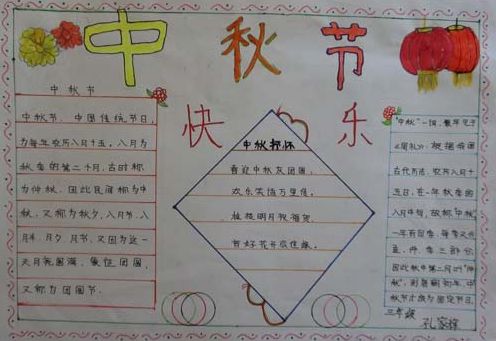 中秋节
快乐
中秋节
中秋节，中国传统节日，
为每年农历八月十五，八月为
秋季的第二个月，古时称
为仲秋，因此民间称为中
秋，又称为秋夕，八月节，八
月半，月夕，月节，又因为这一
天月亮圆满，象征团圆，
又称为团圆节。
中秋抒怀
喜迎中秋友团圆，
欢乐笑语万里传。
"中秋"一词，最早见于
古代历法，农历八月十
五日，在一年秋季的
八月中旬，故称"中秋"。
一年有四季，每季又分
孟、仲、季三部分，
因此秋中第二月叫"仲
秋"，到唐朝初年，中
秋节才成为固定节日。
三年级